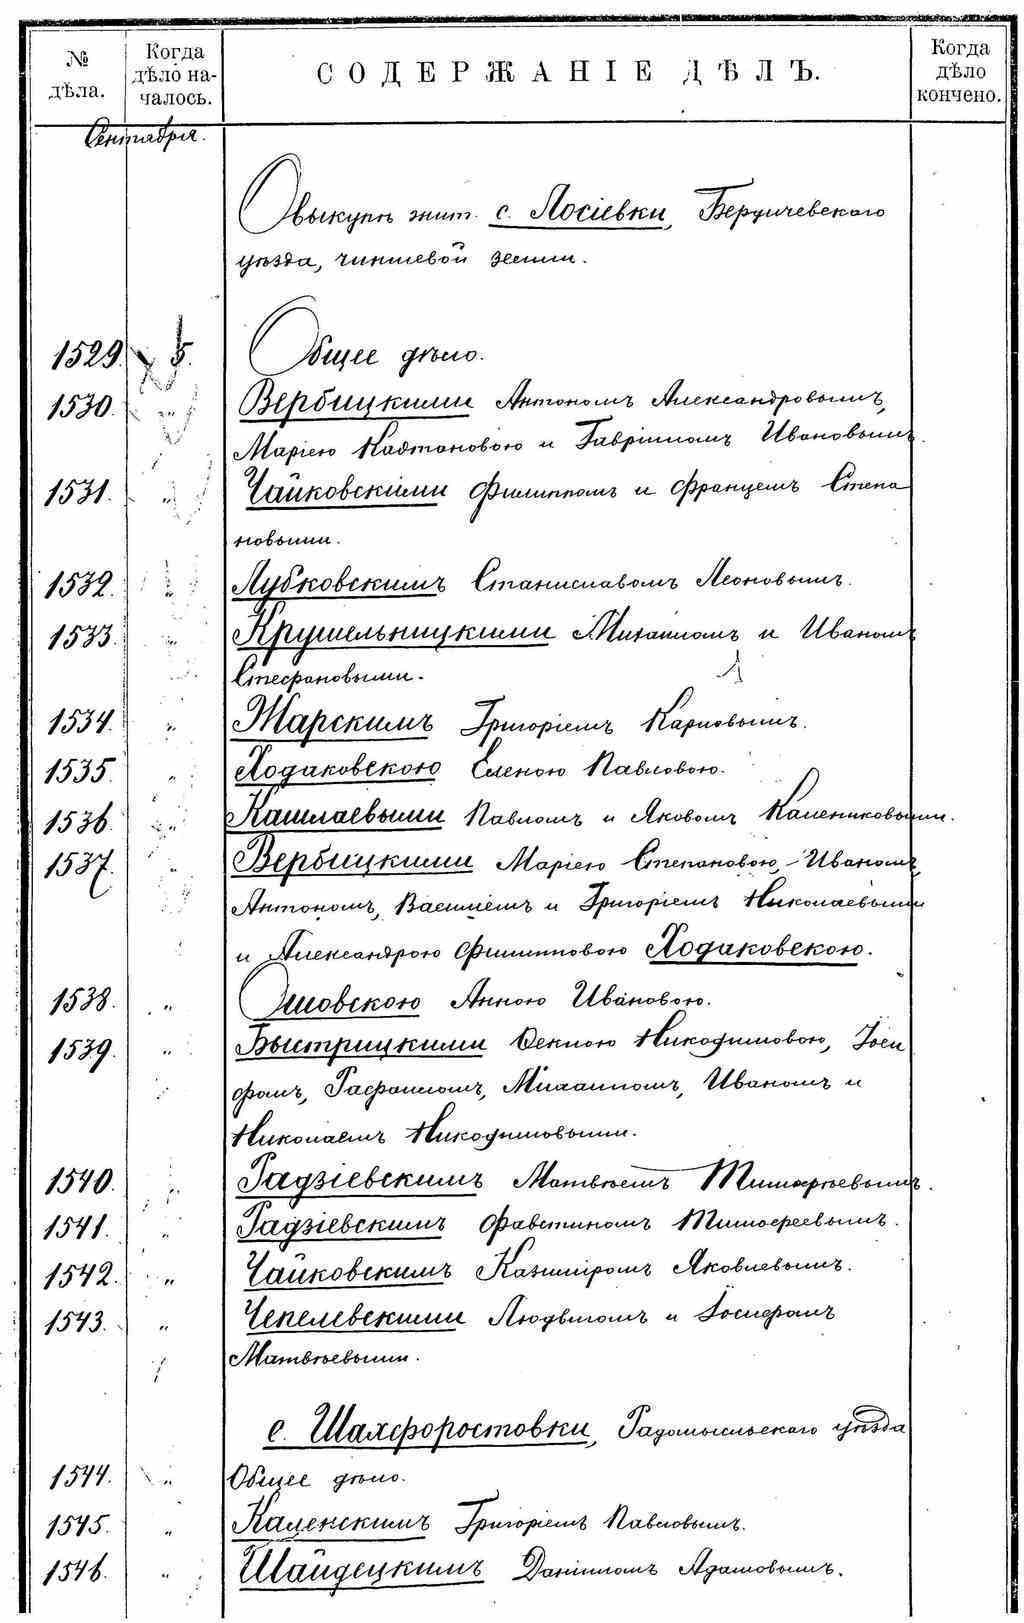 № дѣла. Когда дѣло началось. СОДЕРЖАНІЕ ДѢЛЪ. Когда дѣло кончено.
Сентября.
О выкупѣ жит. с. Лосіевки, Бердичевскаго
уѣзда, чиншевой земли.
1529. 5. Общее дѣло.
1530. „ Вербицкими Антономъ Александровымъ,
Маріею Кавтановою и Гавріиломъ Ивановымъ.
1531. „ Чайковскіми Филиппомъ и Францемъ Степа
новыми.
1532. „ Лубковскимъ Станиславомъ Леоновымъ.
1533. „ Крушельницкими Михаиломъ и Иваномъ
Стефановыми.
1534. „ Жарскимъ Григоріемъ Карповымъ.
1535. „ Ходаковскою Еленою Павловою.
1536. „ Кашлаевыми Павломъ и Яковомъ Калениковыми.
1537. „ Вербицкими Маріею Степановою, Иваномъ,
Антономъ, Василіемъ и Григоріемъ Николаевыми
и Александрою Филипповою Ходаковскою.
1538. „ Ошовскою Анною Ивановою.
1539. „ Быстрицкими Феклою Никодимовою, Іоси
фомъ, Рафаиломъ, Михаиломъ, Иваномъ и
Николаемъ Никодимовыми.
1540. „ Радзіевскимъ Матвѣемъ Тимофѣевымъ.
1541. „ Радзіевскимъ Фавстиномъ Тимофеевымъ.
1542. „ Чайковскимъ Казиміромъ Яковлевымъ.
1543. „ Чепелевскими Людвигомъ и Іосифомъ
Матвѣевыми.
с. Шахфоростовки, Радомысльскаго уѣзда
1544. „ Общее дѣло.
1545. „ Каленскимъ Григоріемъ Павловымъ.
1546. „ Шайдецкимъ Даніиломъ Адамовымъ.